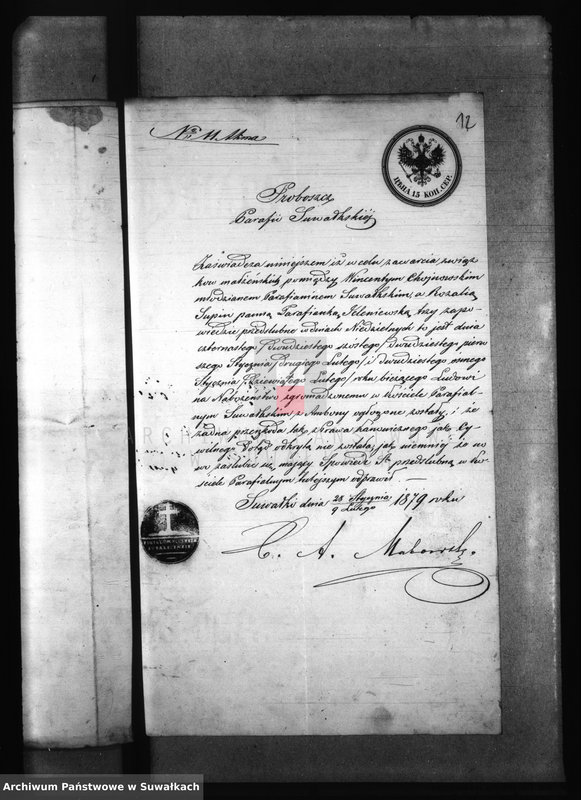 12
№ 11 Akma
ЦѢНА 15 КОП. СЕР.
Proboszcz
Parafii Suwałkskiéj
Zaświadcza niniejszem iż w celu zawarcia związ
ków małżeńskich pomiędzy Wincentym Chojnowskim
młodzianem Parafianinem Suwałkskim, a Rozalią
Supin panną Parafianką Jeleniewską trzy zapo-
wiedzie przedślubne w dniach Niedzielnych to jest dnia
czternastego / dwudziestego szóstego / dwudziestego pierw
szego Stycznia / drugiego Lutego / i dwudziestego ósmego
Stycznia / dziewiątego Lutego / roku bieżącego Ludowi
na Nabożeństwo zgromadzonemu w kościele Parafial-
nym Suwałkskim z Ambony ogłoszone zostały, i że
żadna przeszkoda tak z prawa kanonicznego jak Cy-
wilnego dotąd odkrytą nie została, jak niemniéj że no
wo zaślubić się mający Spowiedź Stą przedślubną w ko-
ściele Parafialnym tutejszym odprawił —
Suwałki dnia 28 Stycznia / 9 Lutego 1879 roku
C. A.
Archiwum Państwowe w Suwałkach